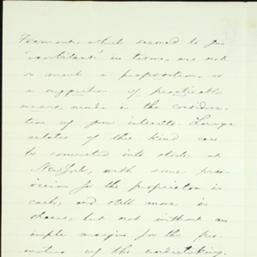 Fremont, which seemed to you
"exorbitant" in terms, are not
so much a proposition, as
a suggestion of practicable
means, made in the consider-
tion of your interests. Large
estates of this kind can
be converted into stock, at
New York, with some pro-
vision for the proprietor in
cash, and still more in
shares, but not without an
ample margin for the pro-
motion of the undertaking.